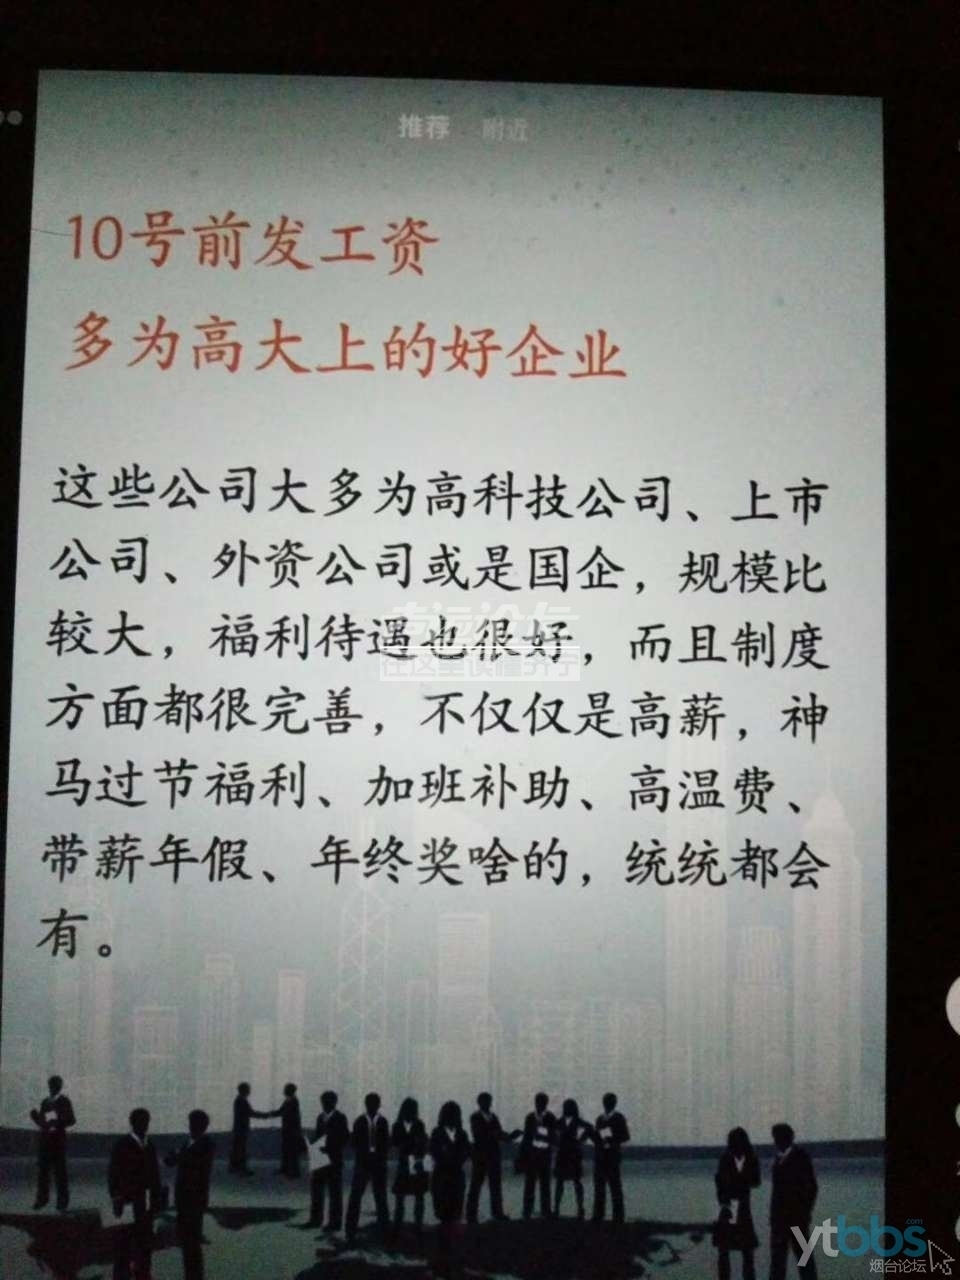 推荐 附近
10号前发工资
多为高大上的好企业
这些公司大多为高科技公司、上市
公司、外资公司或是国企，规模比
较大，福利待遇也很好，而且制度
方面都很完善，不仅仅是高薪，神
马过节福利、加班补助、高温费、
带薪年假、年终奖啥的，统统都会
有。
在这里读懂济宁
ytbbs.com
烟台论坛